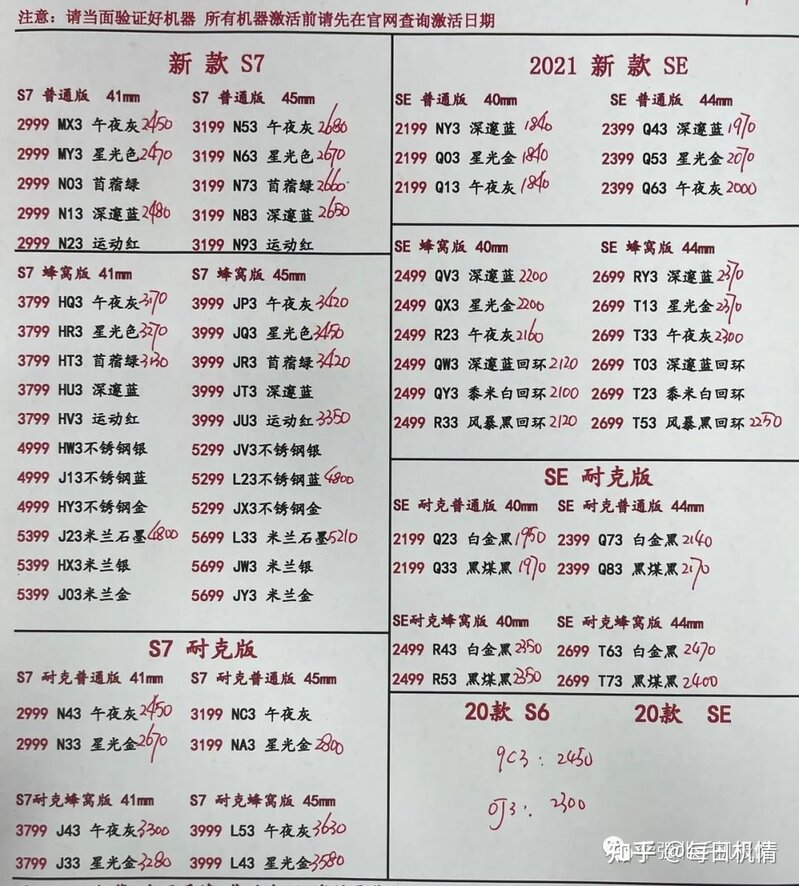 注意：请当面验证好机器 所有机器激活前请先在官网查询激活日期
新 款 S7
S7 普通版 41mm
2999 MX3 午夜灰 2450
2999 MY3 星光色 2470
2999 N03 苜蓿绿
2999 N13 深邃蓝 2480
2999 N23 运动红
S7 普通版 45mm
3199 N53 午夜灰 2680
3199 N63 星光色 2670
3199 N73 苜蓿绿 2660
3199 N83 深邃蓝 2650
3199 N93 运动红
S7 蜂窝版 41mm
3799 HQ3 午夜灰 3170
3799 HR3 星光色 3270
3799 HT3 苜蓿绿 3130
3799 HU3 深邃蓝
3799 HV3 运动红
4999 HW3不锈钢银
4999 J13不锈钢蓝
4999 HY3不锈钢金
5399 J23米兰石墨 4800
5399 HX3米兰银
5399 J03米兰金
S7 蜂窝版 45mm
3999 JP3 午夜灰 3420
3999 JQ3 星光色 3450
3999 JR3 苜蓿绿 3420
3999 JT3 深邃蓝
3999 JU3 运动红 3350
5299 JV3不锈钢银
5299 L23不锈钢蓝 4800
5299 JX3不锈钢金
5699 L33 米兰石墨 5210
5699 JW3 米兰银
5699 JY3 米兰金
S7 耐克版
S7 耐克普通版 41mm
2999 N43 午夜灰 2450
2999 N33 星光金 2670
S7 耐克普通版 45mm
3199 NC3 午夜灰
3199 NA3 星光金 2800
S7耐克蜂窝版 41mm
3799 J43 午夜灰 3300
3799 J33 星光金 3280
S7耐克蜂窝版 45mm
3999 L53 午夜灰 3630
3999 L43 星光金 3580
2021 新 款 SE
SE 普通版 40mm
2199 NY3 深邃蓝 1840
2199 Q03 星光金 1840
2199 Q13 午夜灰 1840
SE 普通版 44mm
2399 Q43 深邃蓝 1970
2399 Q53 星光金 2070
2399 Q63 午夜灰 2000
SE 蜂窝版 40mm
2499 QV3 深邃蓝 2200
2499 QX3 星光金 2200
2499 R23 午夜灰 2160
2499 QW3 深邃蓝回环 2120
2499 QY3 黍米白回环 2100
2499 R33 风暴黑回环 2120
SE 蜂窝版 44mm
2699 RY3 深邃蓝 2370
2699 T13 星光金 2370
2699 T33 午夜灰 2300
2699 T03 深邃蓝回环
2699 T23 黍米白回环
2699 T53 风暴黑回环 2250
SE 耐克版
SE 耐克普通版 40mm
2199 Q23 白金黑 1950
2199 Q33 黑煤黑 1970
SE 耐克普通版 44mm
2399 Q73 白金黑 2140
2399 Q83 黑煤黑 2170
SE耐克蜂窝版 40mm
2499 R43 白金黑 2350
2499 R53 黑煤黑 2350
SE 耐克蜂窝版 44mm
2699 T63 白金黑 2470
2699 T73 黑煤黑 2400
20款 S6
20款 SE
9C3: 2450
0J3: 2300
知乎 @每日机情